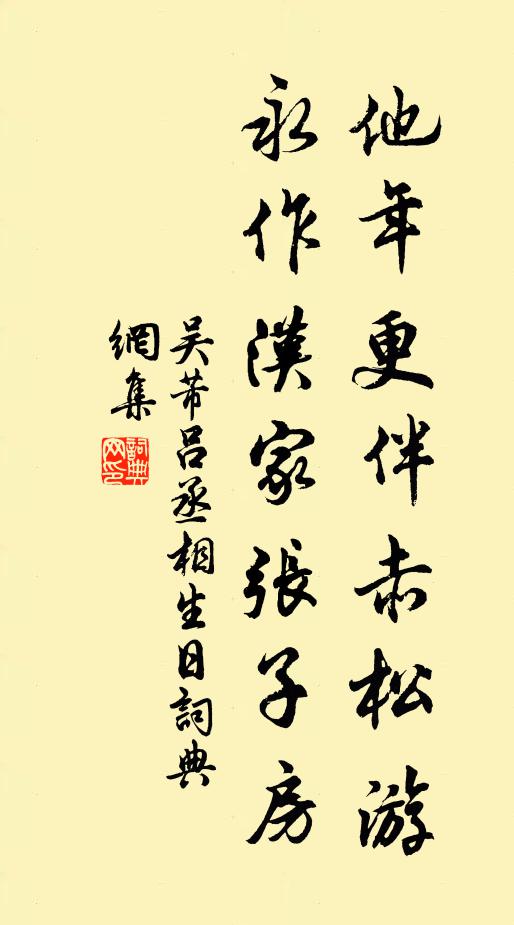 他年更伴赤松游
永作漢家張子房
吴芾吕丞相生日詞典
網集
詞典網印